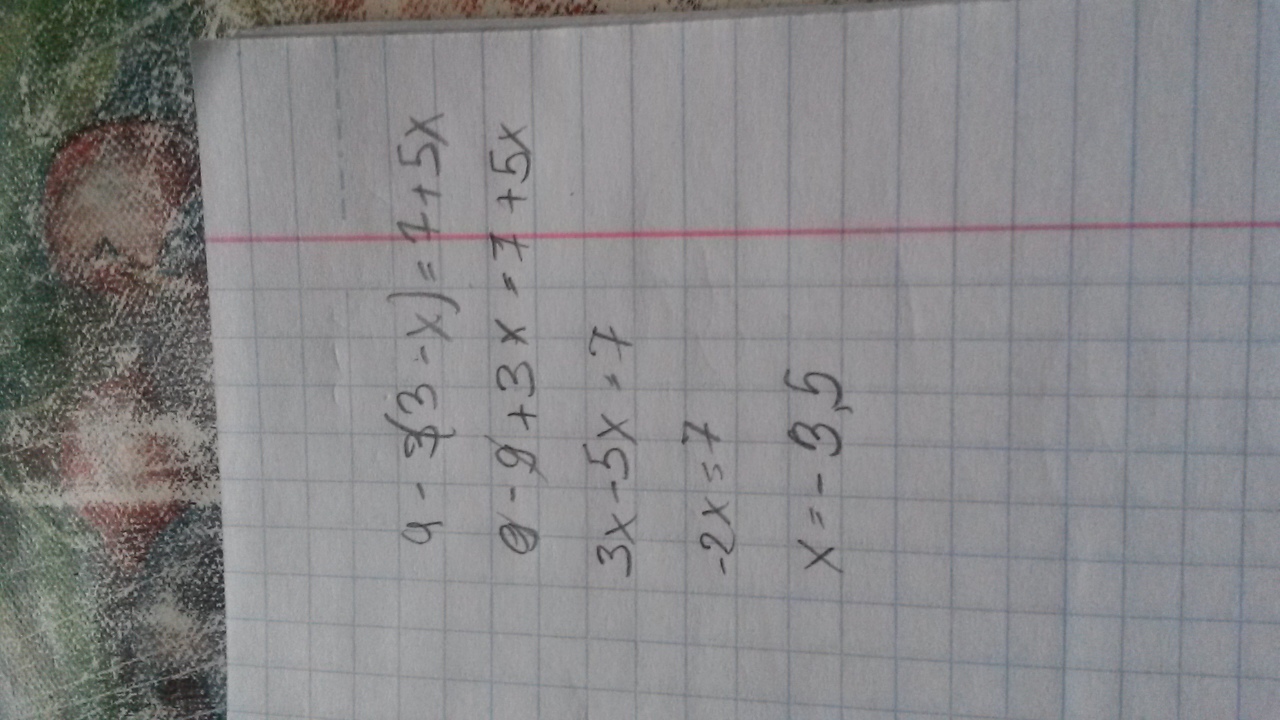 9 - 3(3 - x) = 7 + 5x
9 - 9 + 3x = 7 + 5x
3x - 5x = 7
-2x = 7
x = - 3,5